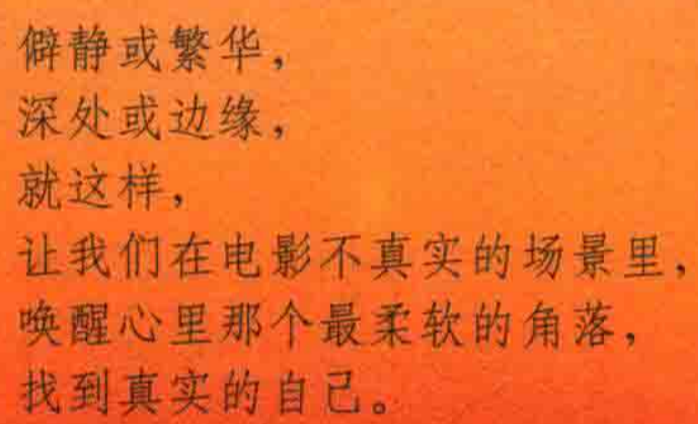 僻静或繁华，
深处或边缘，
就这样，
让我们在电影不真实的场景里，
唤醒心里那个最柔软的角落，
找到真实的自己。